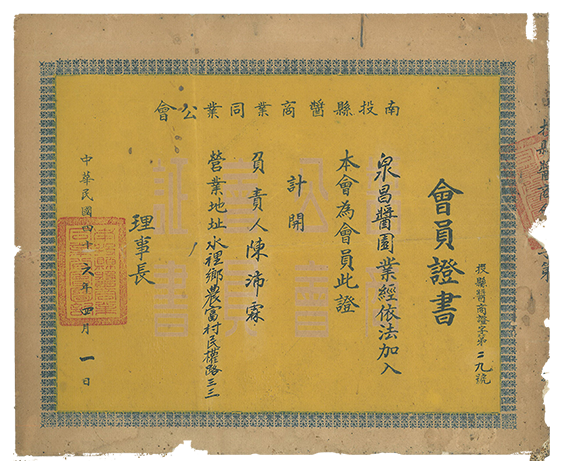 南投縣醬商業同業公會
會員證書
投縣醬商證字第二九號
泉昌醬園業經依法加入
本會為會員此證
計開
負責人陳沛霖
營業地址水裡鄉農富村民權路三三
理事長
中華民國四十六年四月一日
投縣醬商